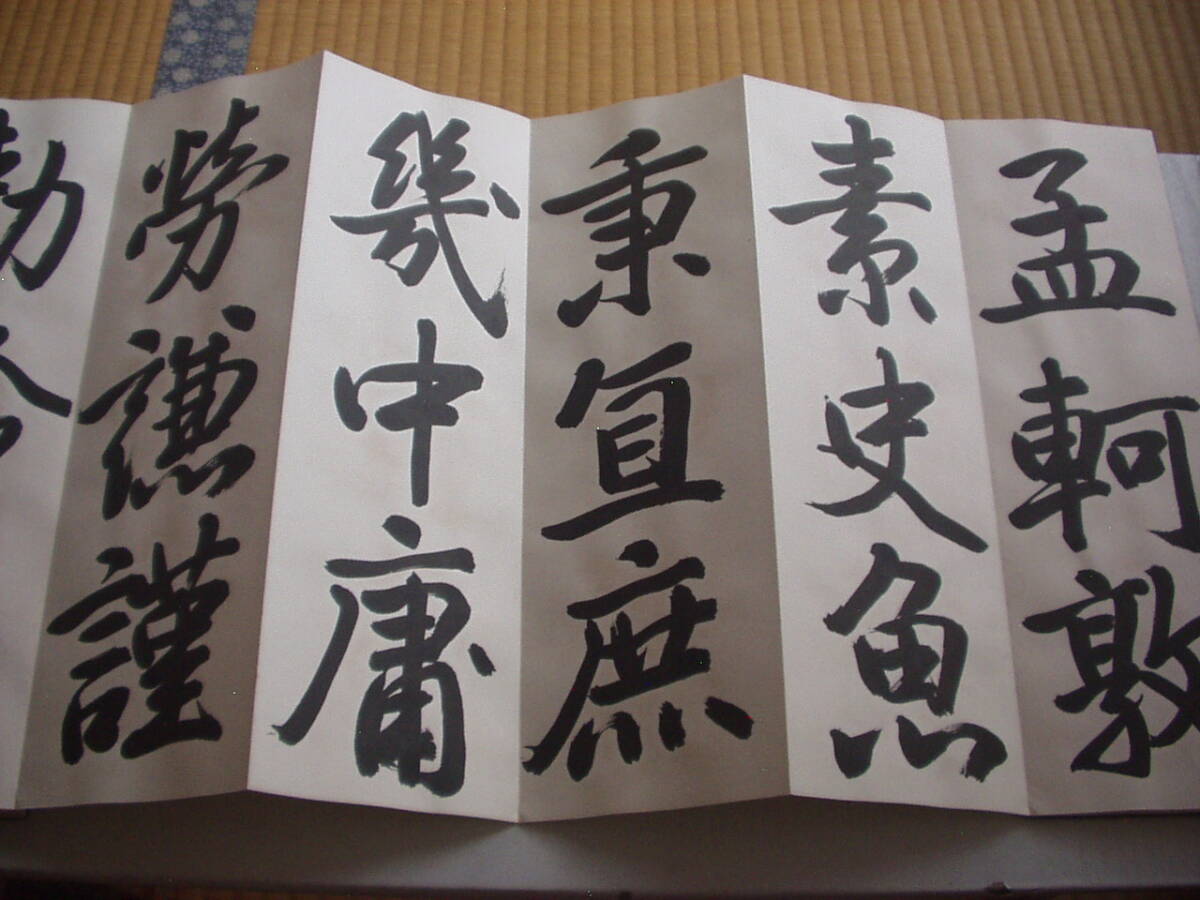 孟軻敦
素史魚
秉直庶
幾中庸
勞謙謹
勅